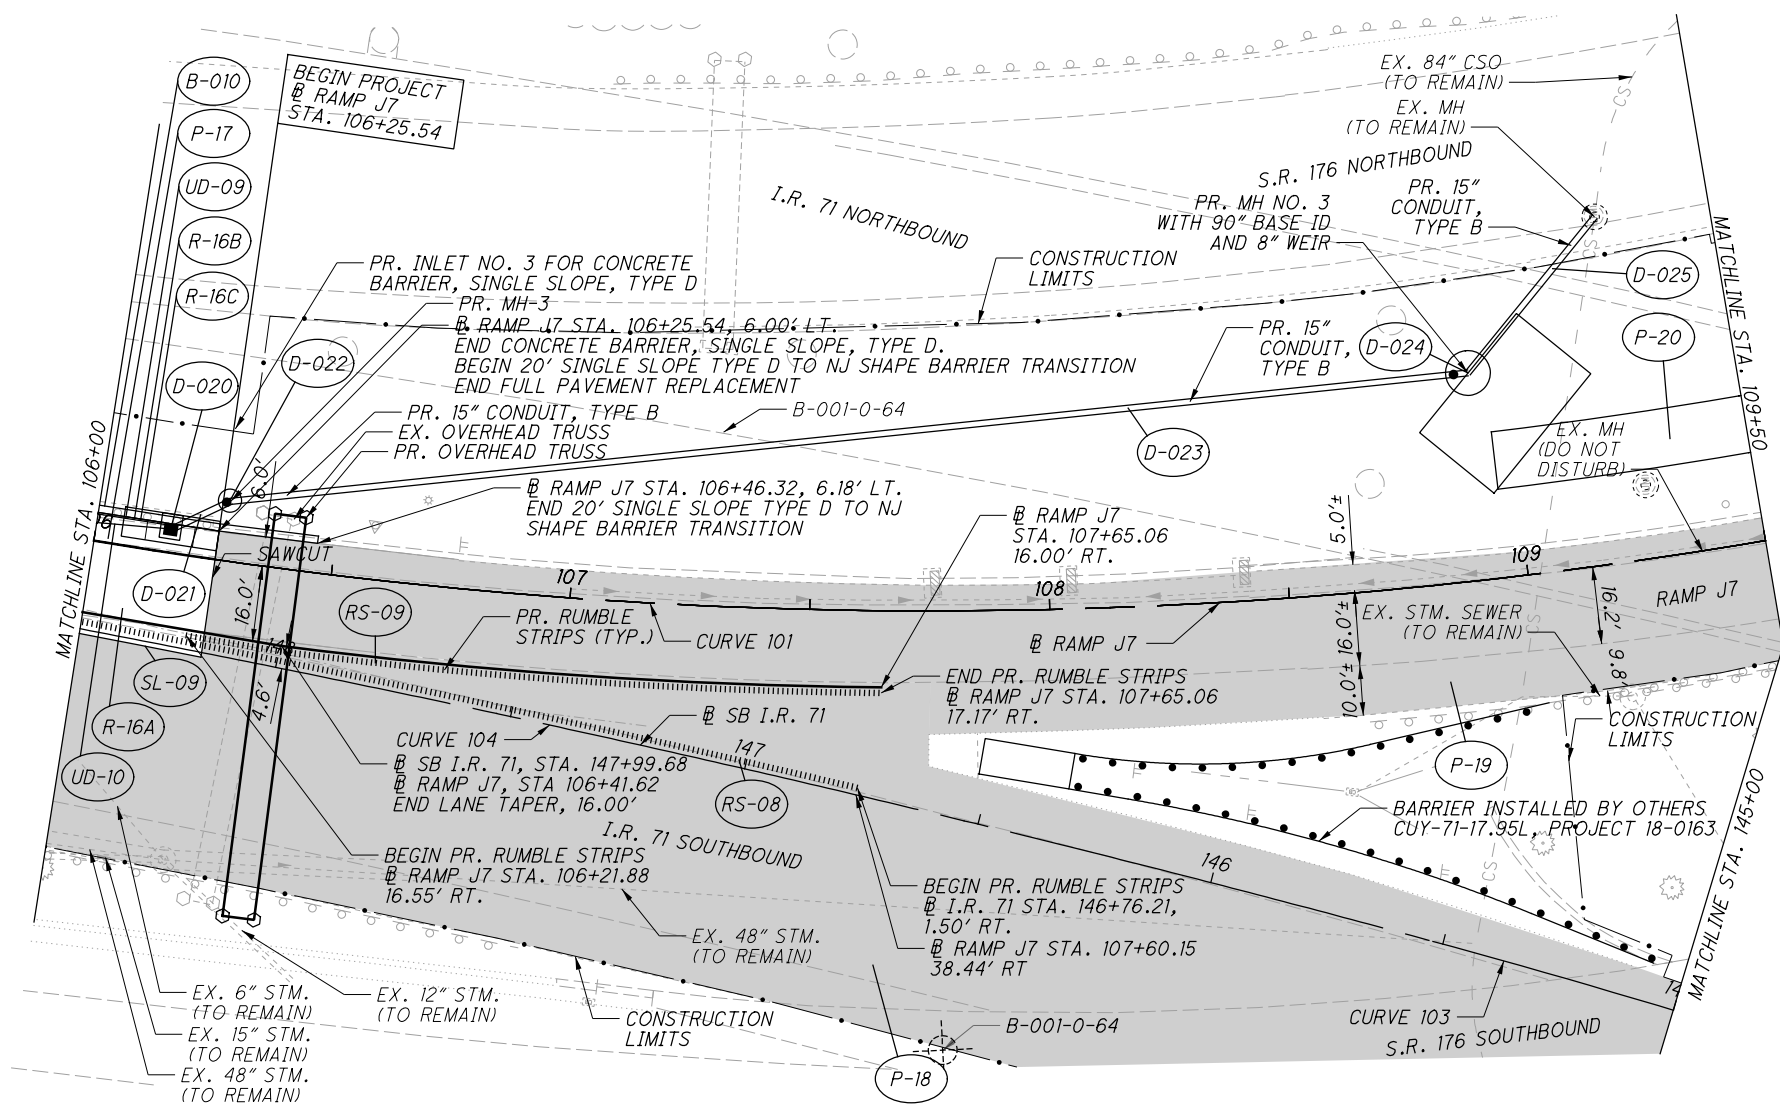 B-010
P-17
UD-09
R-16B
R-16C
D-020
D-022
BEGIN PROJECT
℄ RAMP J7
STA. 106+25.54
EX. 84" CSO
(TO REMAIN)
EX. MH
(TO REMAIN)
CS
S.R. 176 NORTHBOUND
I.R. 71 NORTHBOUND
PR. 15"
CONDUIT,
TYPE B
PR. MH NO. 3
WITH 90" BASE ID
AND 8" WEIR
CONSTRUCTION
LIMITS
D-025
MATCHLINE STA. 109+50
PR. INLET NO. 3 FOR CONCRETE
BARRIER, SINGLE SLOPE, TYPE D
PR. MH-3
℄ RAMP J7 STA. 106+25.54, 6.00' LT.
END CONCRETE BARRIER, SINGLE SLOPE, TYPE D.
BEGIN 20' SINGLE SLOPE TYPE D TO NJ SHAPE BARRIER TRANSITION
END FULL PAVEMENT REPLACEMENT
PR. 15"
CONDUIT,
TYPE B
D-024
P-20
PR. 15" CONDUIT, TYPE B
EX. OVERHEAD TRUSS
PR. OVERHEAD TRUSS
B-001-0-64
D-023
EX. MH
(DO NOT
DISTURB)
MATCHLINE STA. 106+00
6.0'
℄ RAMP J7 STA. 106+46.32, 6.18' LT.
END 20' SINGLE SLOPE TYPE D TO NJ
SHAPE BARRIER TRANSITION
℄ RAMP J7
STA. 107+65.06
16.00' RT.
5.0'±
SAWCUT
107
108
109
D-021
16.0'
RS-09
PR. RUMBLE
STRIPS (TYP.)
CURVE 101
℄ RAMP J7
16.0'±
EX. STM. SEWER
(TO REMAIN)
16.2'
RAMP J7
148
SL-09
4.6'
END PR. RUMBLE STRIPS
℄ RAMP J7 STA. 107+65.06
17.17' RT.
10.0'±
9.8'
R-16A
℄ SB I.R. 71
CONSTRUCTION
LIMITS
UD-10
CURVE 104
℄ SB I.R. 71, STA. 147+99.68
℄ RAMP J7, STA 106+41.62
END LANE TAPER, 16.00'
147
RS-08
P-19
BARRIER INSTALLED BY OTHERS
CUY-71-17.95L, PROJECT 18-0163
MATCHLINE STA. 145+00
I.R. 71 SOUTHBOUND
BEGIN PR. RUMBLE STRIPS
℄ RAMP J7 STA. 106+21.88
16.55' RT.
146
CS
BEGIN PR. RUMBLE STRIPS
℄ I.R. 71 STA. 146+76.21,
1.50' RT.
℄ RAMP J7 STA. 107+60.15
38.44' RT
EX. 48" STM.
(TO REMAIN)
EX. 6" STM.
(TO REMAIN)
EX. 15" STM.
(TO REMAIN)
EX. 48" STM.
(TO REMAIN)
EX. 12" STM.
(TO REMAIN)
CONSTRUCTION
LIMITS
B-001-0-64
P-18
CURVE 103
S.R. 176 SOUTHBOUND